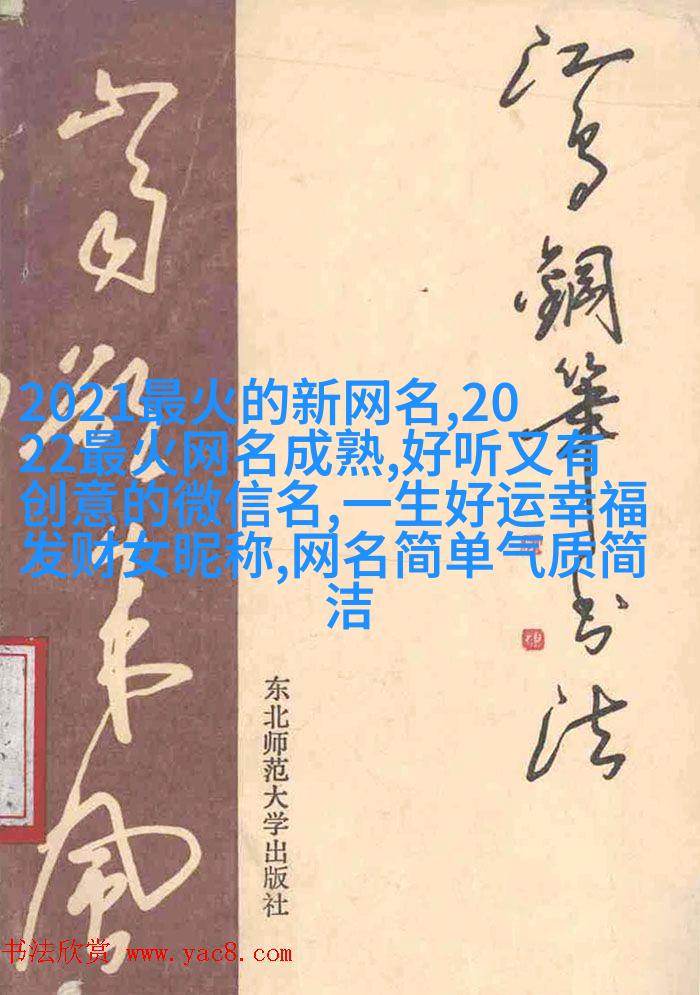 江鸟鋼筆书法
2021最火的新网名,20
22最火网名成熟,好听又有
创意的微信名,一生好运幸福
发财女昵称,网名简单气质简
洁
东北师范大学出版社
书法欣赏 www.yac8.com